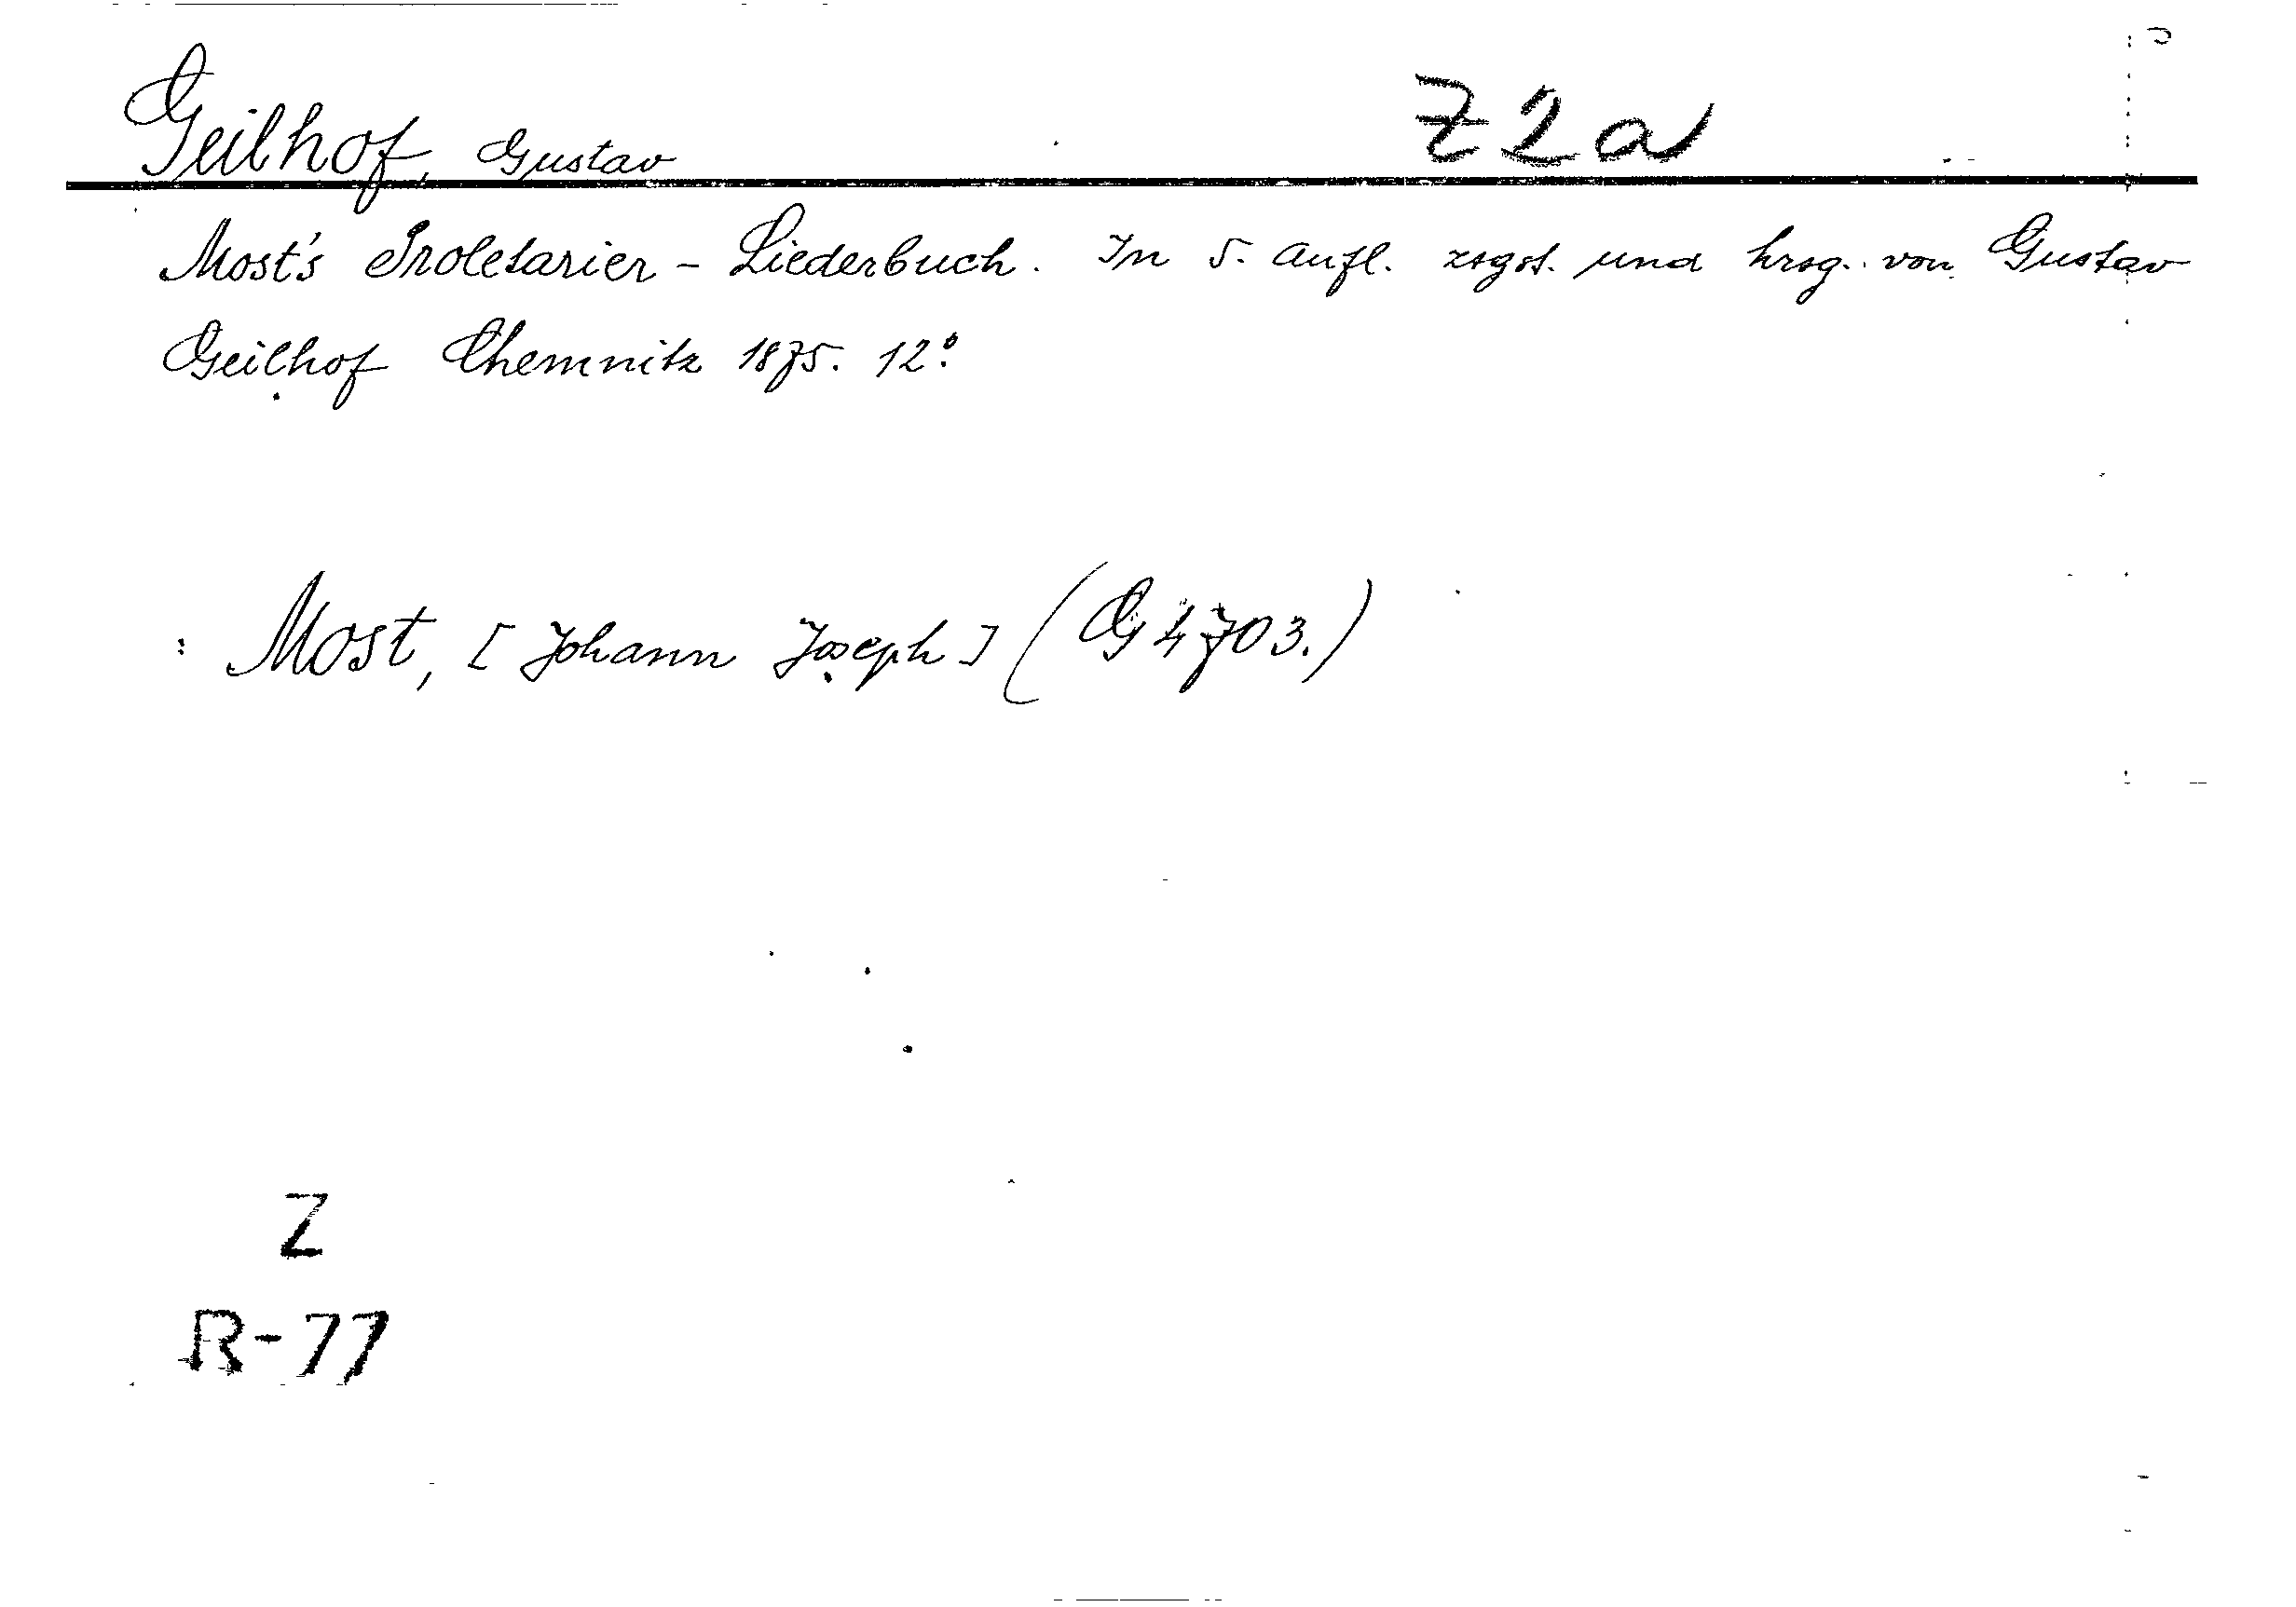 Geilhof, Gustav Z2a
Most's Proletarier-Liederbuch. In 5. Aufl. zsgst. und hrsg. von Gustav
Geilhof Chemnitz 1875. 12°.
: Most, [Johann Joseph] (G 4703.)
Z
R-77